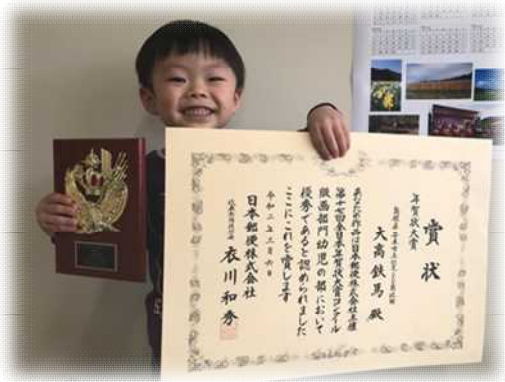 賞状
年賀状大賞
大高鉄馬 殿
あなたの作品は日本郵便株式会社主催
第十七回全日本年賀状大賞コンクール
版画部門幼児の部において
優秀であると認められました
ここにこれを賞します
令和二年三月六日
日本郵便株式会社
衣川和秀